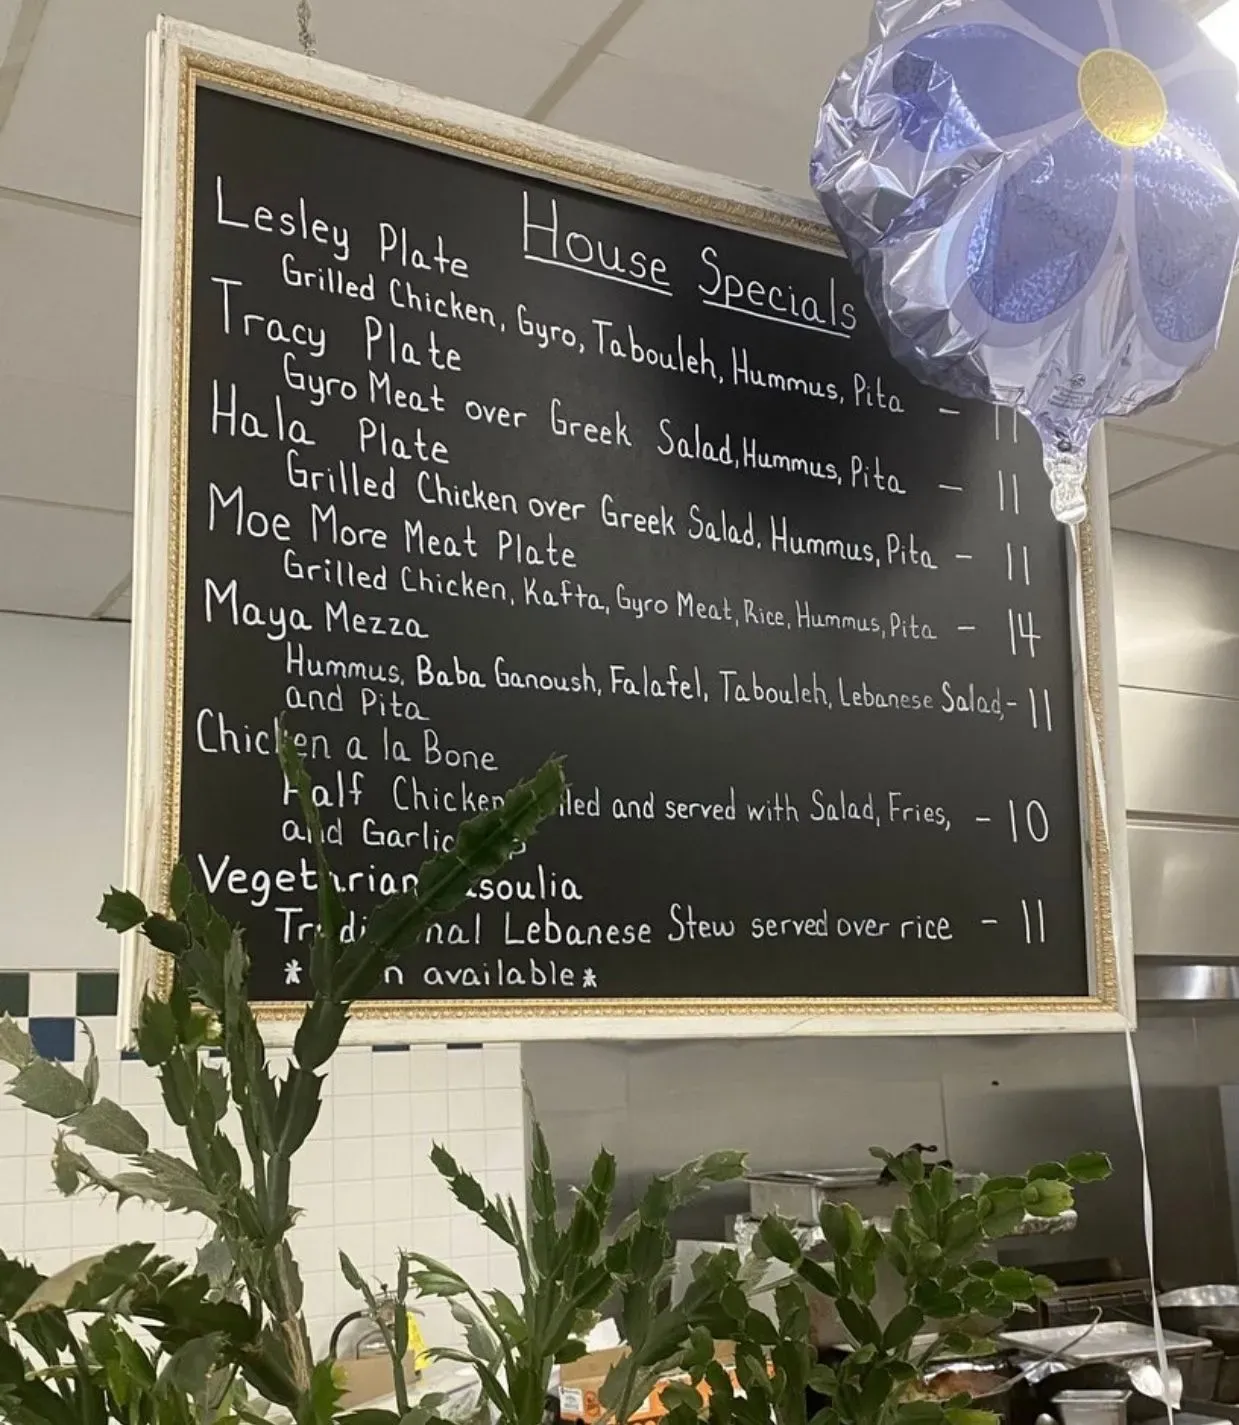 House Specials
Lesley Plate
Grilled Chicken, Gyro, Tabouleh, Hummus, Pita - 11
Tracy Plate
Gyro Meat over Greek Salad, Hummus, Pita - 11
Hala Plate
Grilled Chicken over Greek Salad, Hummus, Pita - 11
Moe More Meat Plate
Grilled Chicken, Kafta, Gyro Meat, Rice, Hummus, Pita - 14
Maya Mezza
Hummus, Baba Ganoush, Falafel, Tabouleh, Lebanese Salad, - 11
and Pita
Chicken a la Bone
Half Chicken and served with Salad, Fries, - 10
and Garlic
Vegetarian
Traditional Lebanese Stew served over rice - 11
* available *